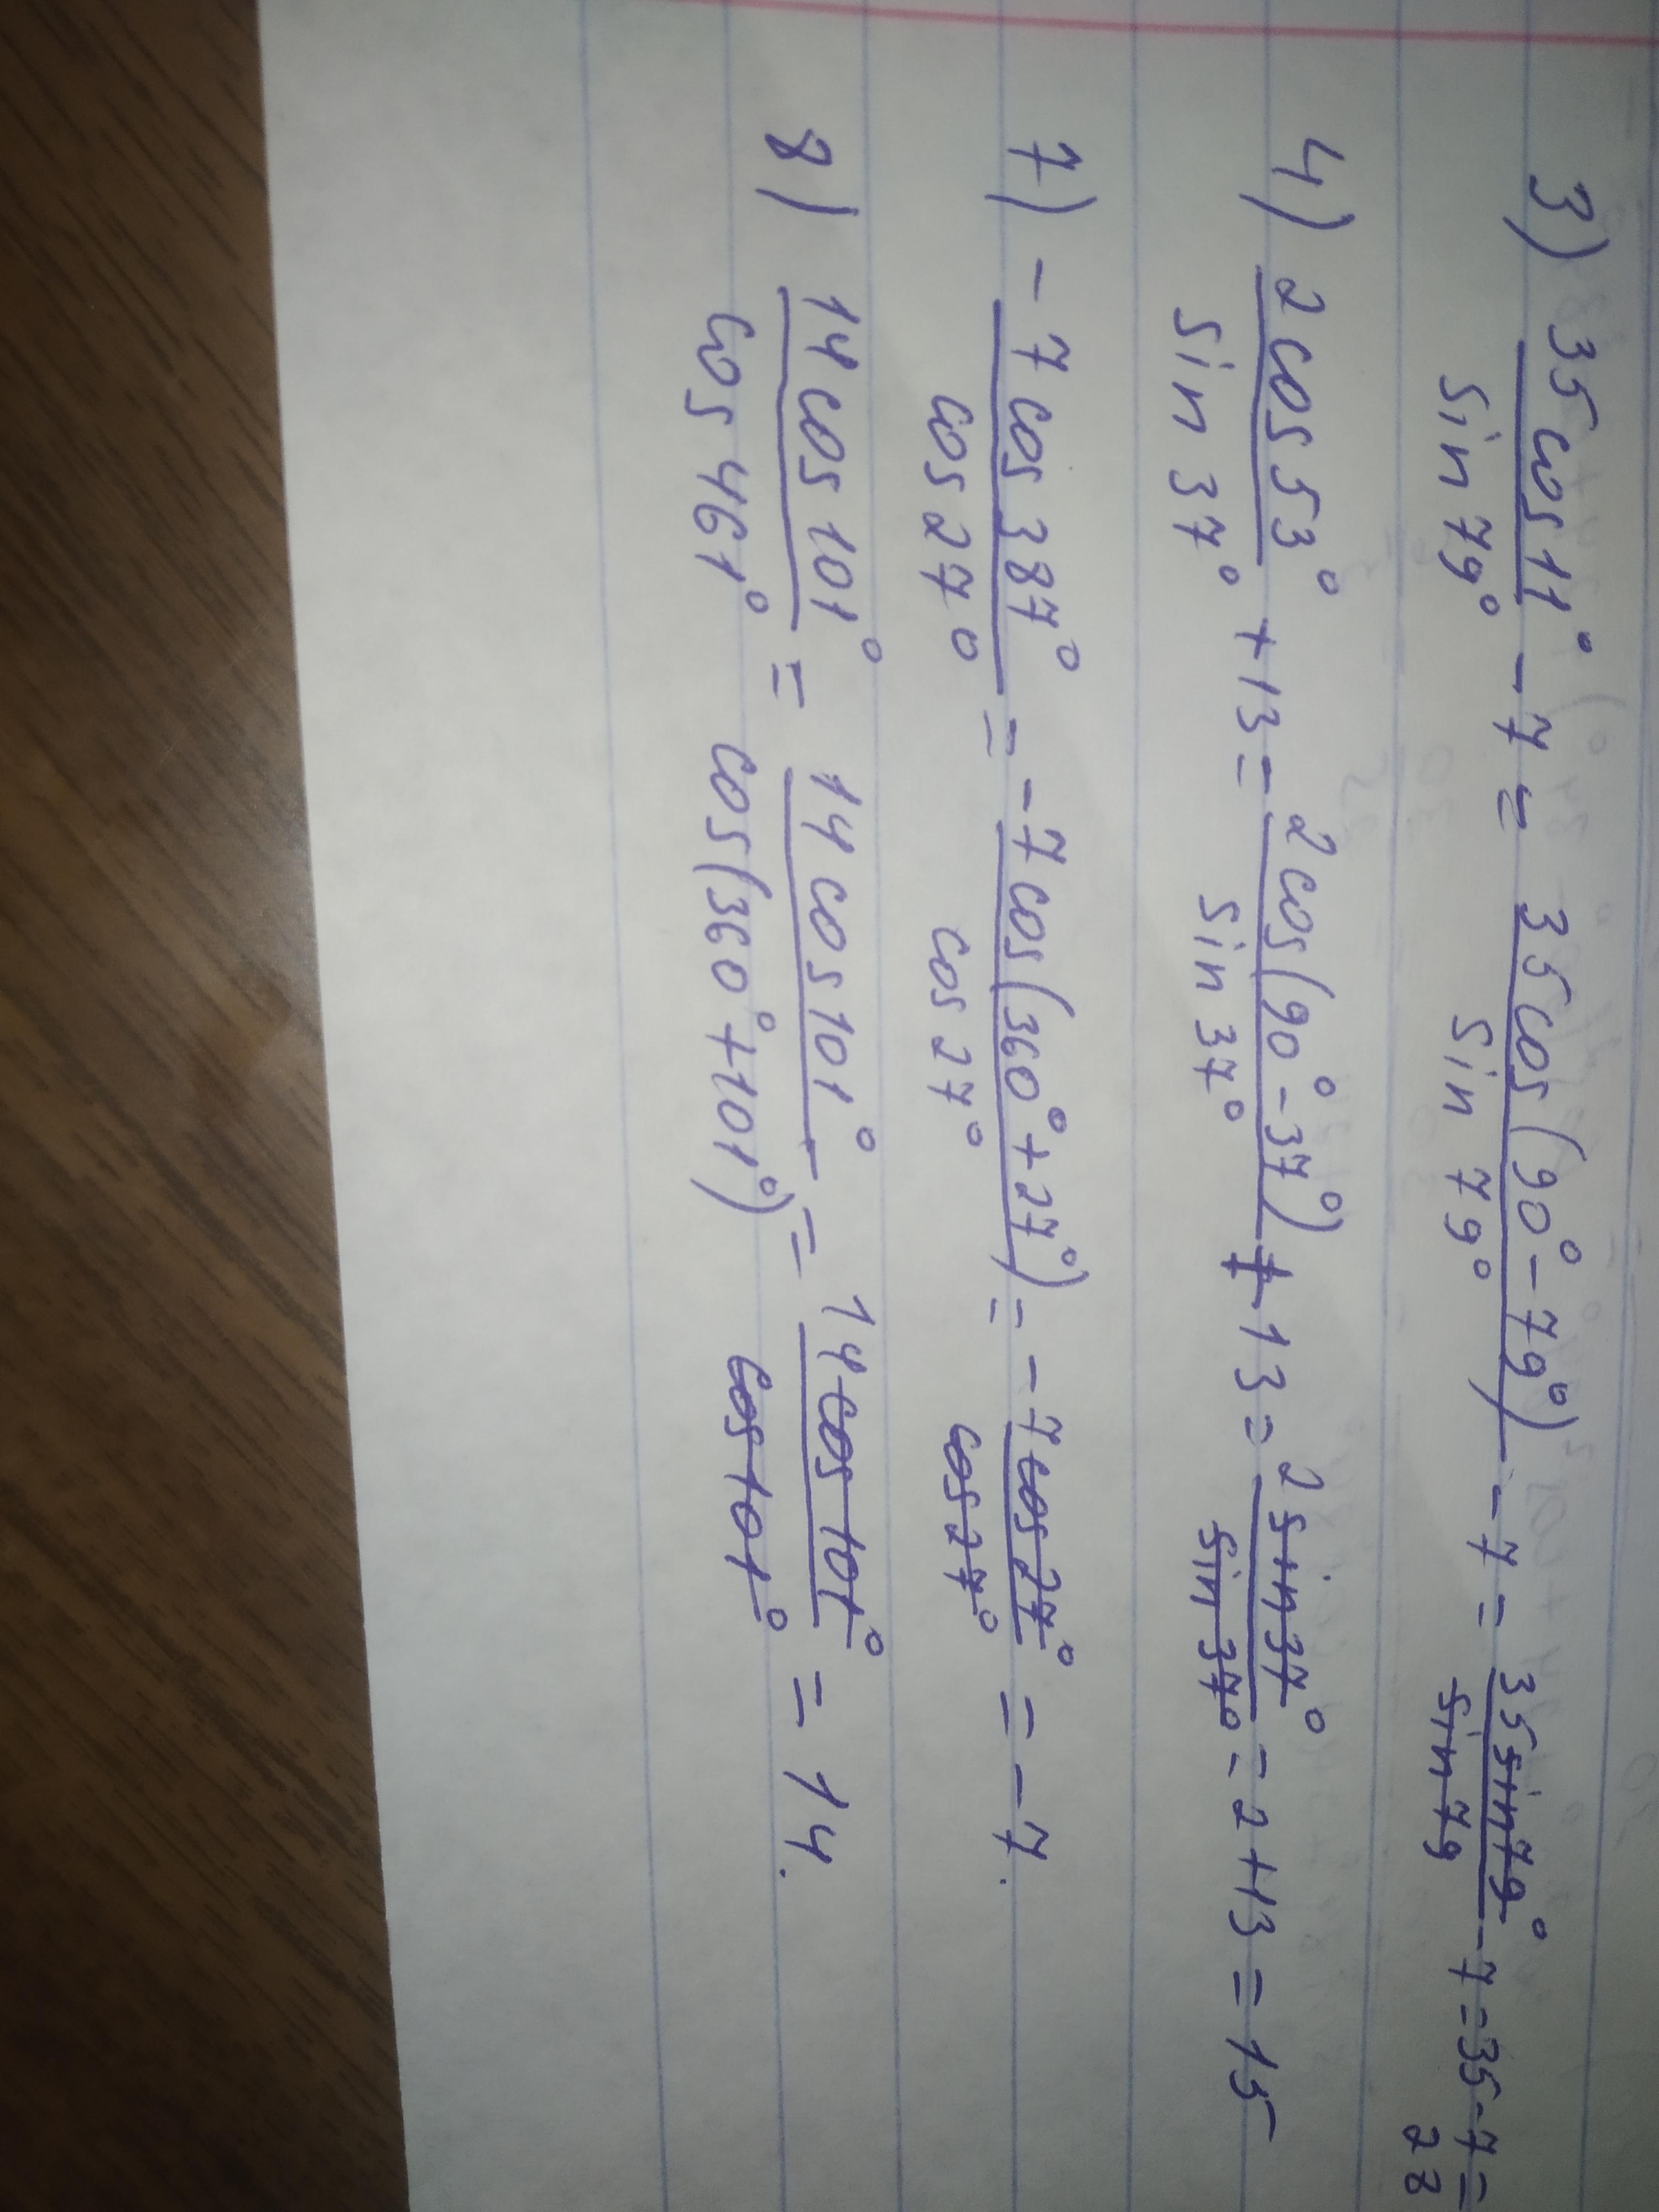 3) 35cos11° / sin 79° - 7 = 35cos(90° - 79°) / sin 79° - 7 = 35sin79° / sin 79 - 7 = 35 - 7 = 28
4) 2cos53° / sin 37° + 13 = 2cos(90° - 37°) / sin 37° + 13 = 2sin37° / sin 37° = 2 + 13 = 15
7) - 7cos387° / cos27° = - 7cos(360° + 27°) / cos 27° = - 7cos27° / cos27° = -7.
8) 14cos101° / cos461° = 14cos101° / cos(360° + 101°) = 14cos101° / cos101° = 14.